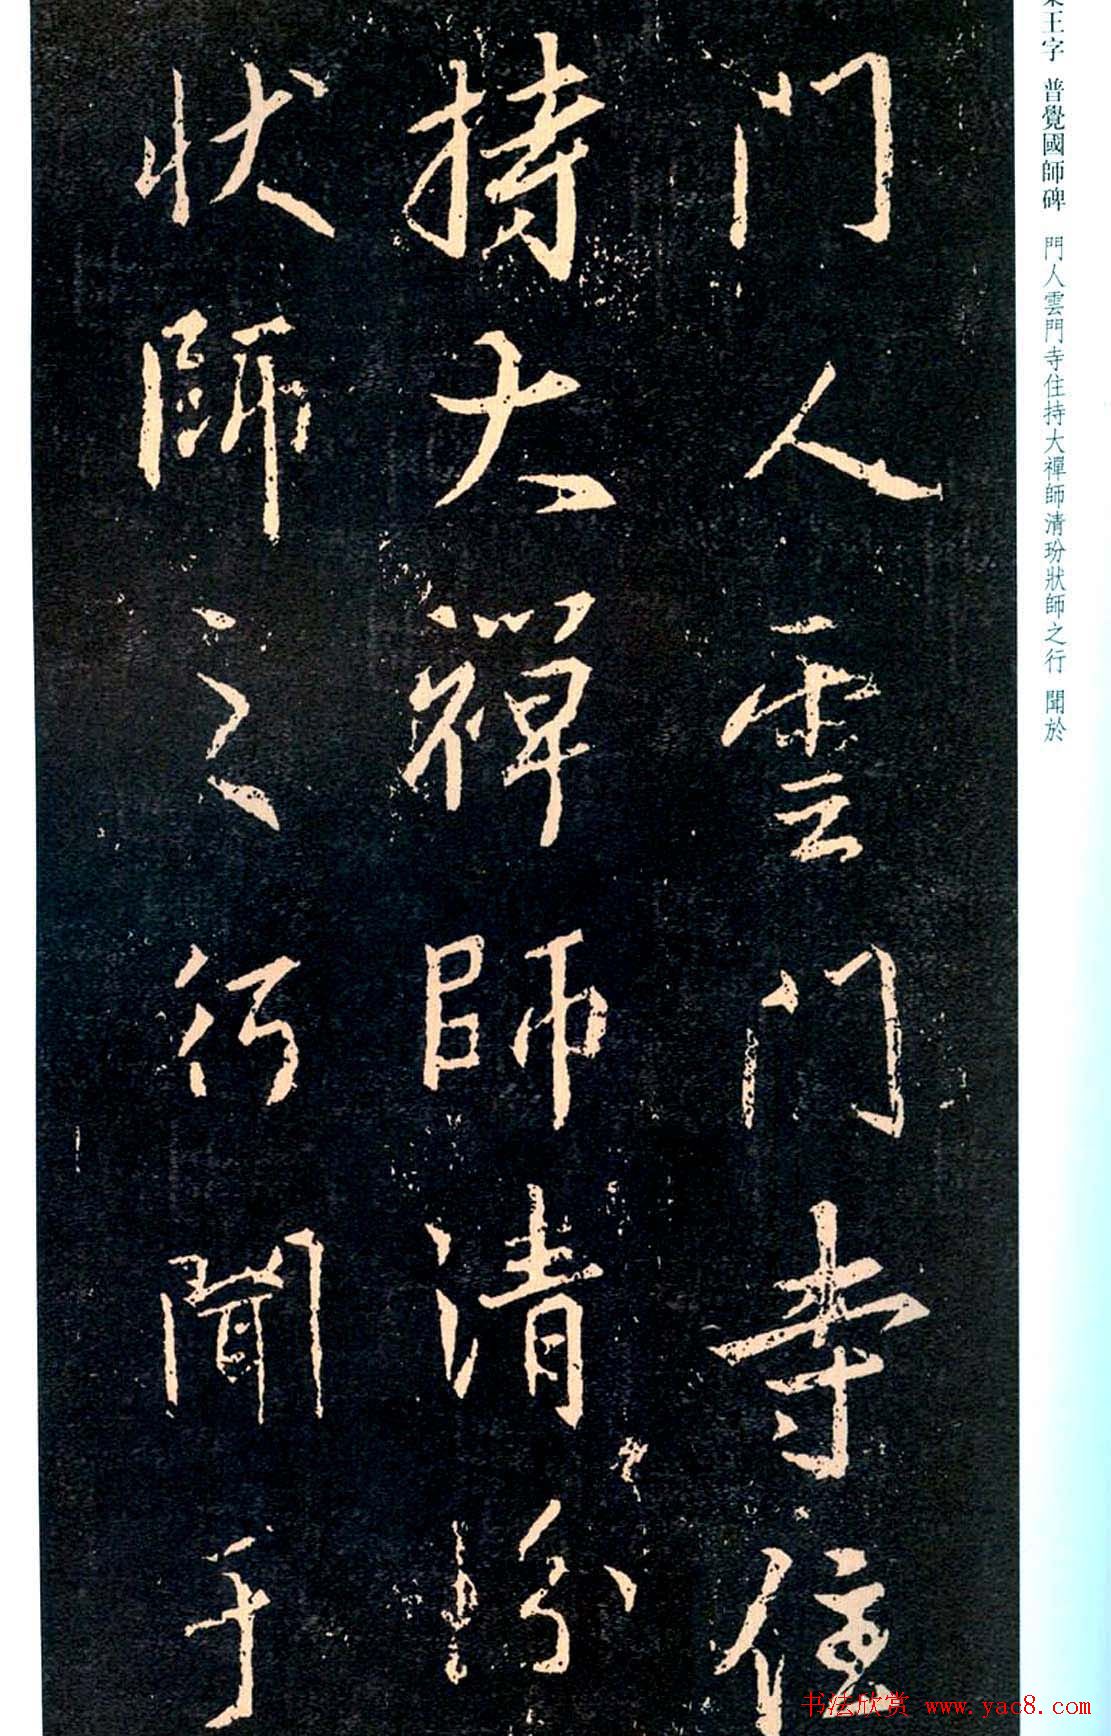 門人雲門寺住
持大禪師清玢
狀師之行聞于
王字 普覺國師碑 門人雲門寺住持大禪師清玢狀師之行 聞於
书法欣赏 www.yac8.com